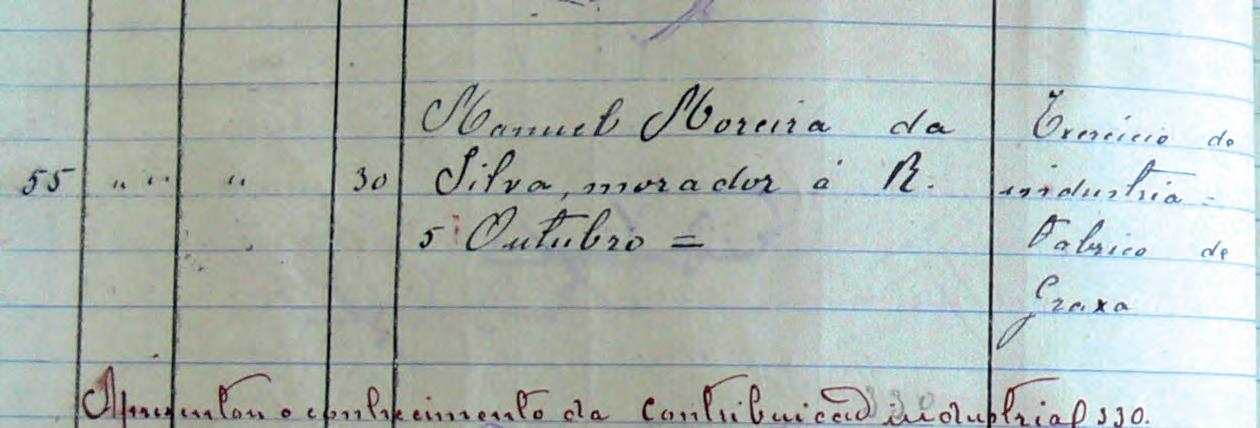 Manuel Moreira da Exercicio de
55 " " " 30 Silva, morador á R. industria =
5 Outubro = Fabrico de
Graxa
Apresentou o conhecimento da Contribuição industrial 330.